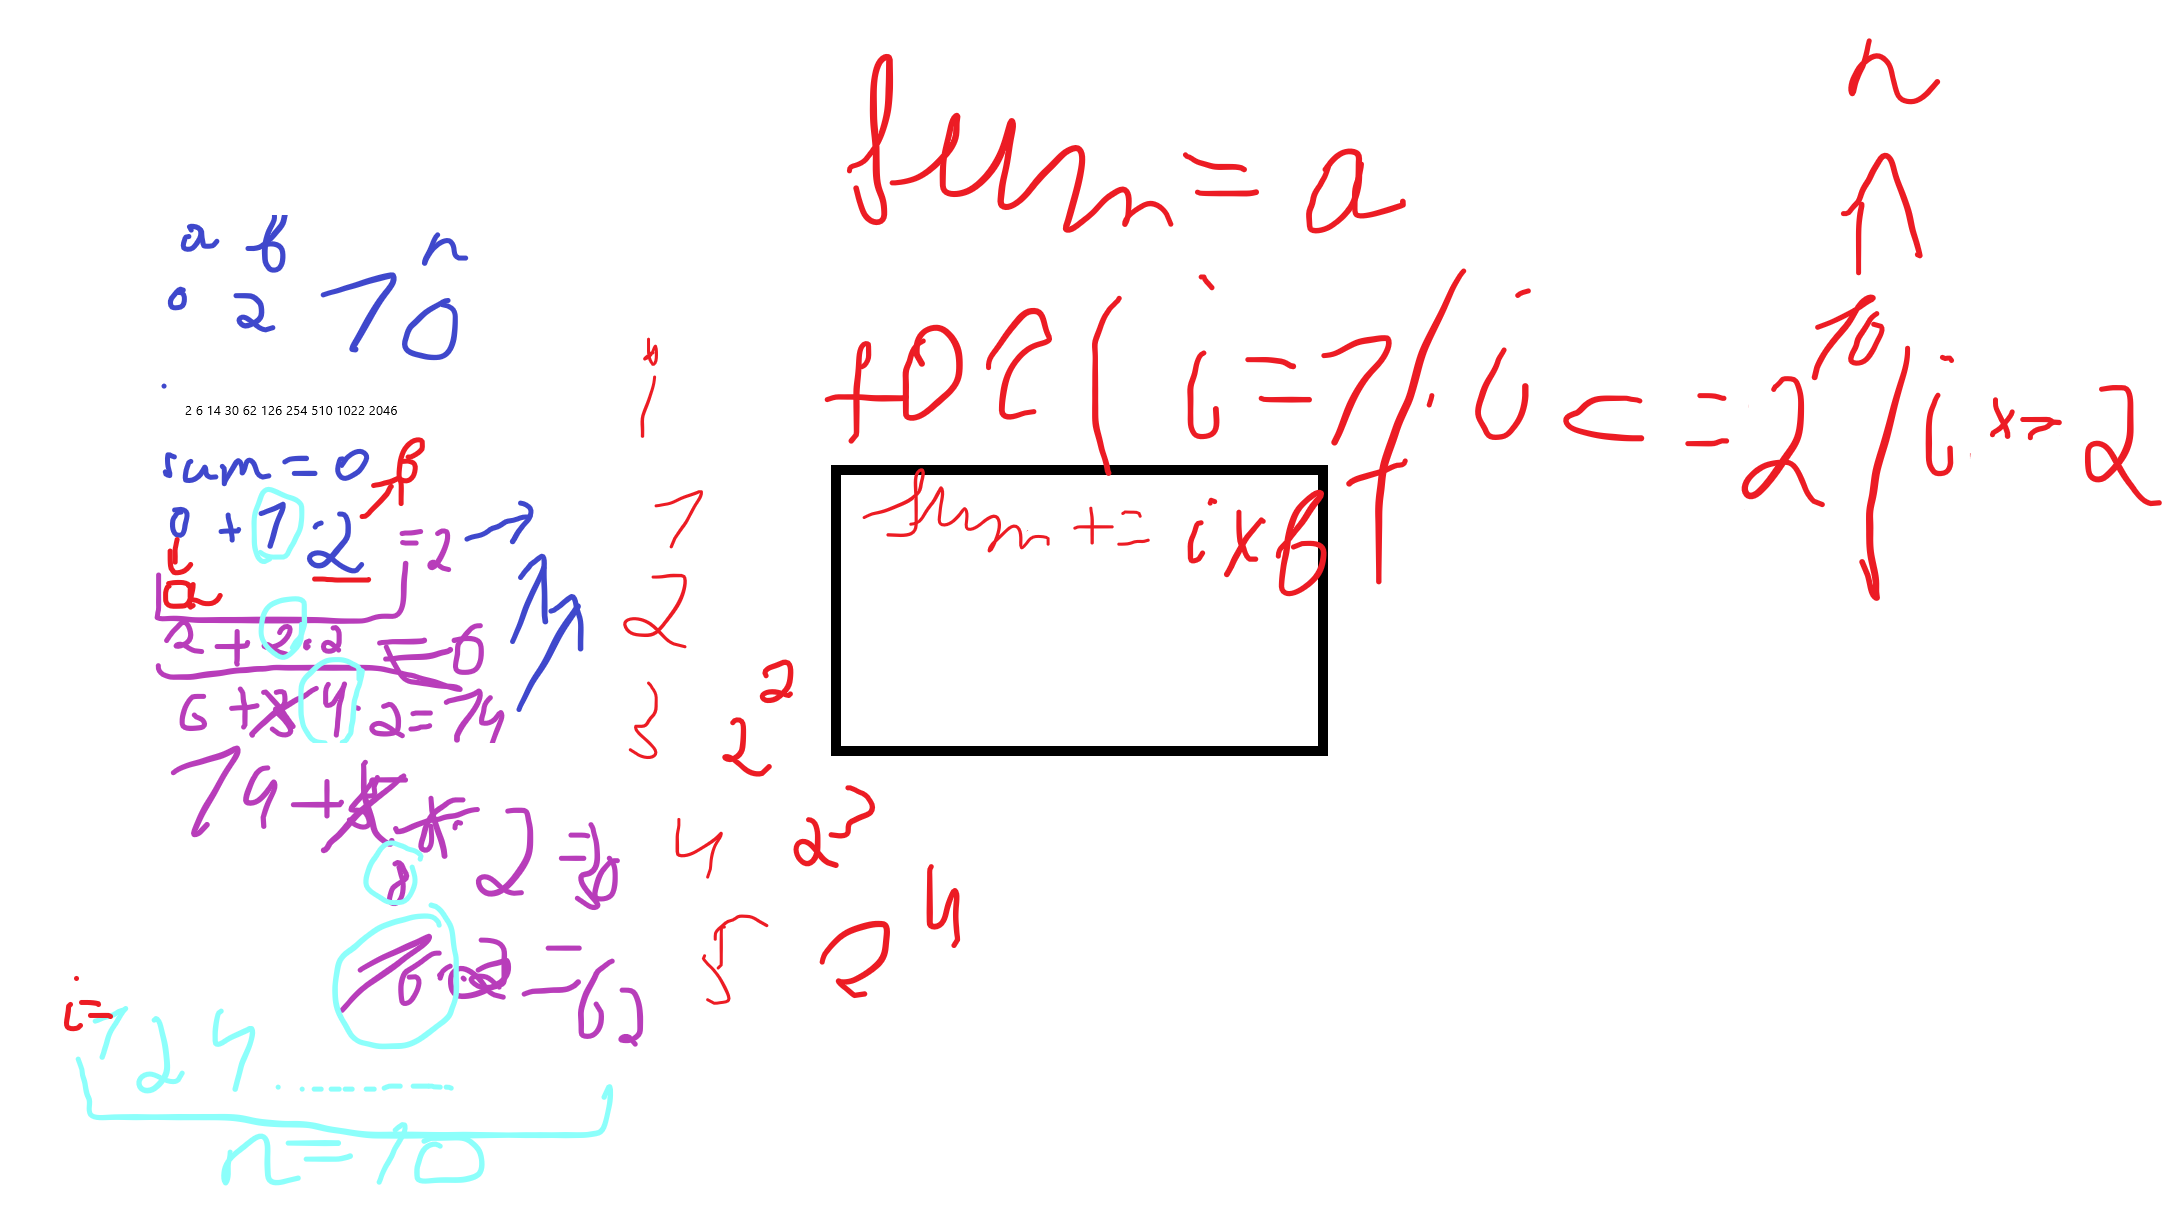 a b n
0 2 10
2 6 14 30 62 126 254 510 1022 2046
sum = 0
b
0 + 1 · 2 = 2
a
2 + 2 · 2 = 6
6 + 4 · 2 = 14
14 + 8 · 2 = 30
16 · 2 = 62
i = 1 2 4
n = 10
i
1
2
3 2^2
4 2^3
5 2^4
sum = a
n
for ( i = 1 ; i <= 2^10 ; i *= 2
sum += i * b